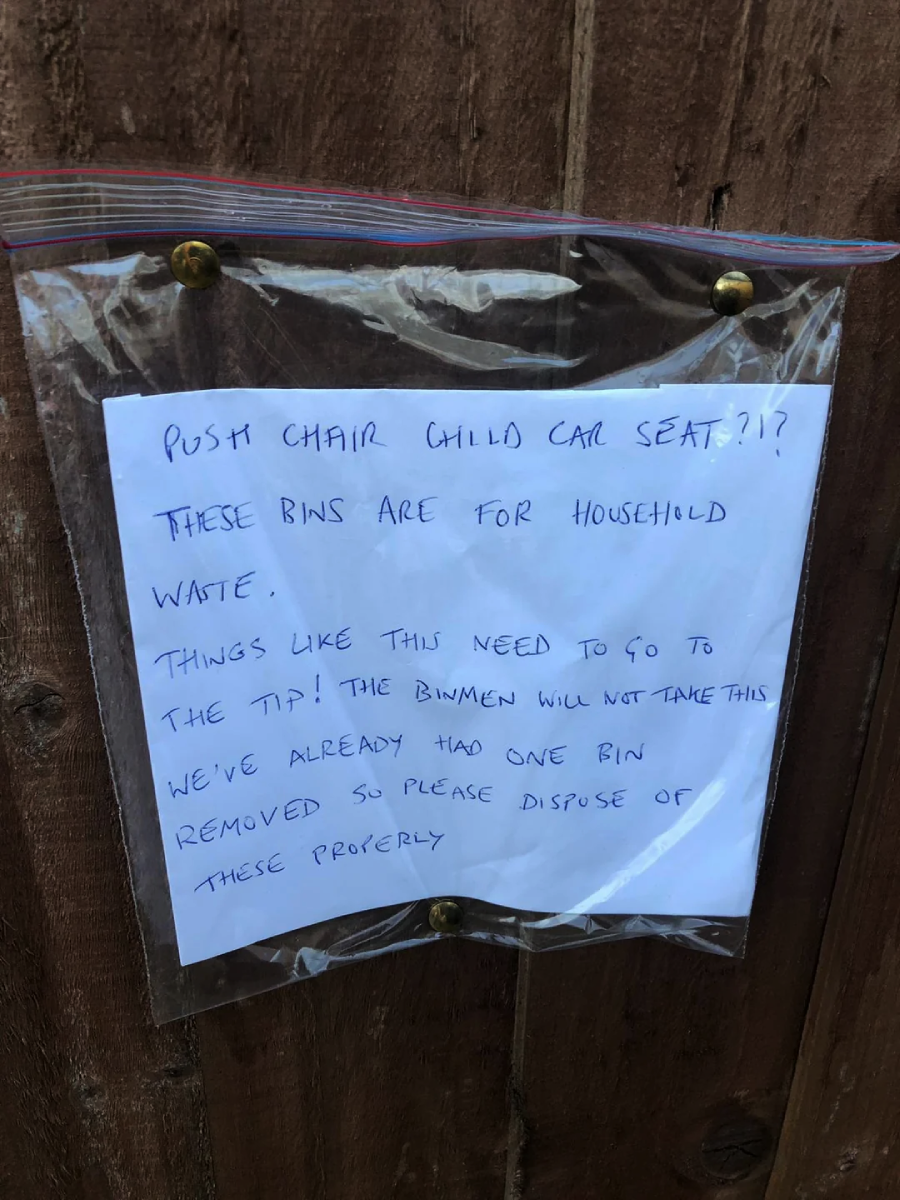 PUSH CHAIR CHILD CAR SEAT?!?
THESE BINS ARE FOR HOUSEHOLD
WASTE.
THINGS LIKE THIS NEED TO GO TO
THE TIP! THE BINMEN WILL NOT TAKE THIS
WE'VE ALREADY HAD ONE BIN
REMOVED SO PLEASE DISPOSE OF
THESE PROPERLY